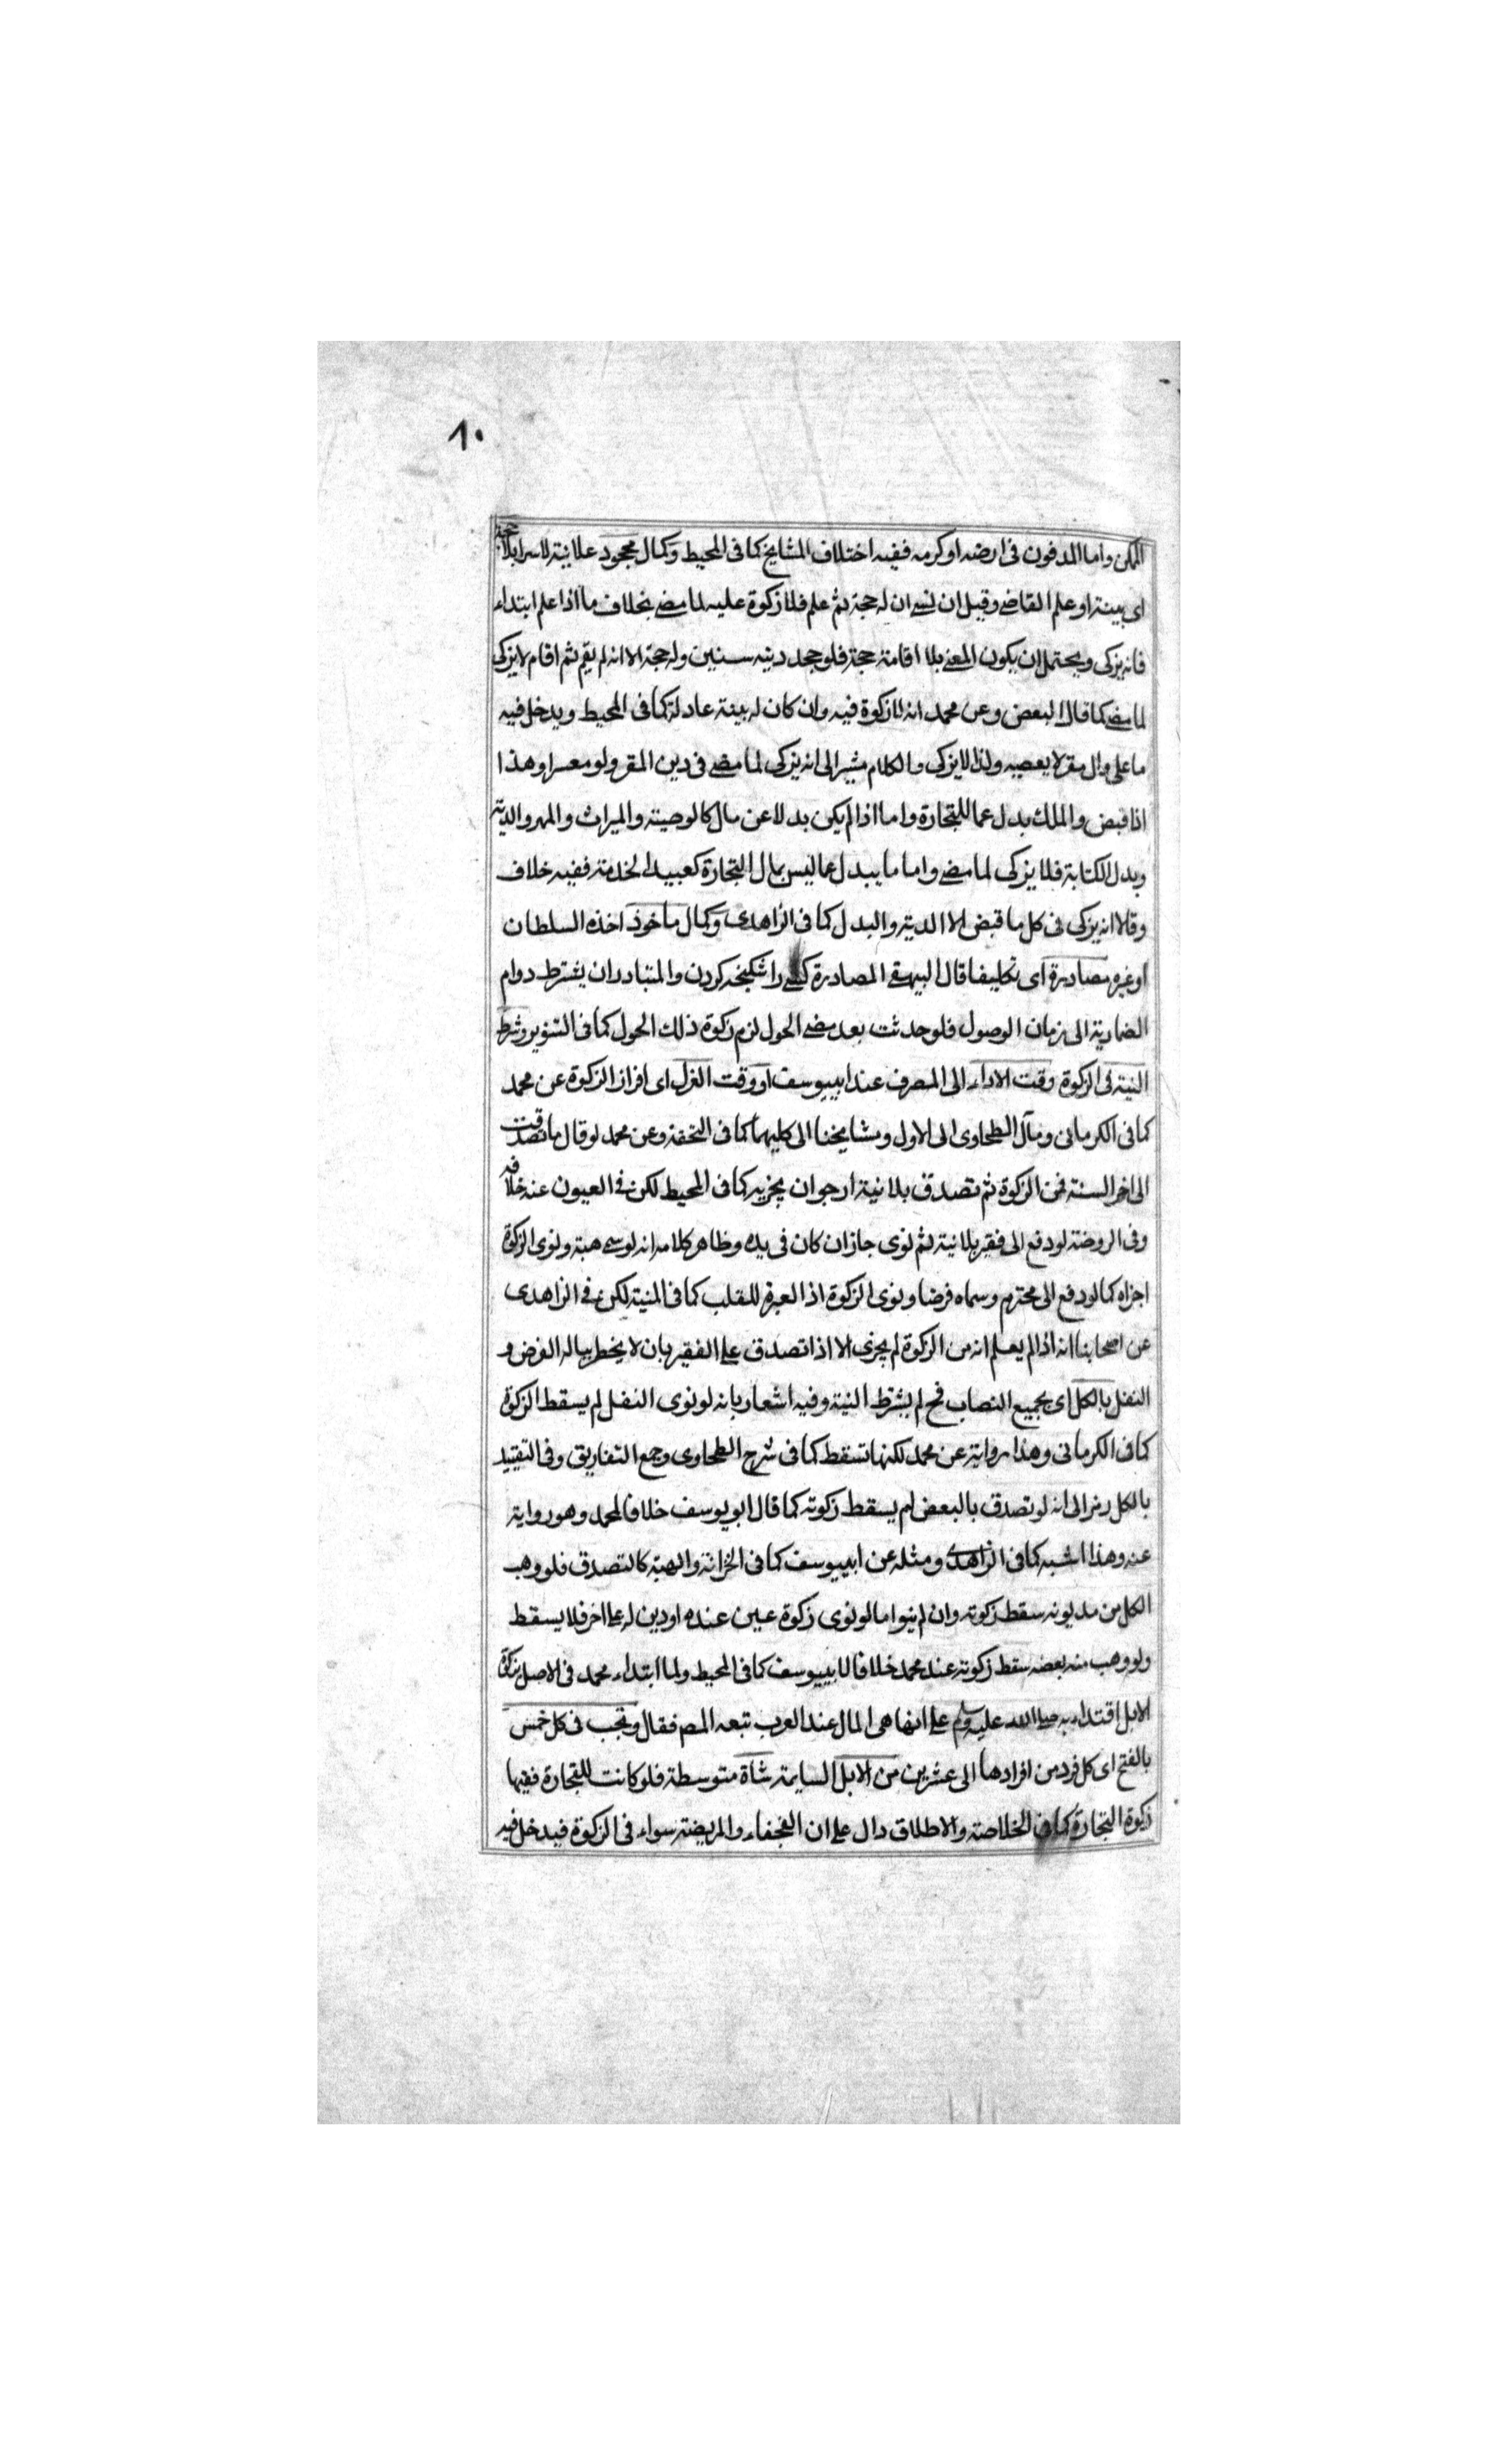 ٨٠
الممكن واما المدفون فى ارضه او كرمه ففيه اختلاف المشايخ كما فى المحيط وكمال مجحود علانية لا سرا بلا حجة
اى بينة او علم القاضے وقيل ان نسے ان له حجة ثم علم فلا زكوة عليه لما مضے بخلاف ما اذا علم ابتداء
فانه يزكى ويحتمل ان يكون المعنے بلا اقامة حجة فلو جحد دينه سنين وله حجة الا انه لم يقم ثم اقام لا يزكى
لما مضے كما قال البعض وعن محمد انه لا زكوة فيه وان كان له بينة عادلة كما فى المحيط ويدخل فيه
ما على وال مقر لا يعطيه ولذا لا يزكى والكلام مشير الى انه يزكى لما مضے فى دين المقر ولو معسرا وهذا
اذا قبض والملك بدل عما للتجارة واما اذا لم يكن بدلا عن مال كالوصية والميراث والمهر والدية
وبدل الكتابة فلا يزكى لما مضے واما ما يبدل عما ليس بمال التجارة كعبيد الخدمة ففيه خلاف
وقالا انه يزكى فى كل ما قبض الا الدية والبدل كما فى الزاهدى وكمال ماخوذ اخذه السلطان
او غيره مصادرة اى تكليفا قال البيهقے المصادرة كسے را شكنجه كردن والمتبادر ان يشترط دوام
الضمارية الى زمان الوصول فلو حدثت بعد مضے الحول لزم زكوة ذلك الحول كما فى التنوير وشرط
النية فى الزكوة وقت الاداء الى المصرف عند ابييوسف او وقت العزل اى افراز الزكوة عن محمد
كما فى الكرمانى ومآل الطحاوى الى الاول ومشايخنا الى كليهما كما فى التحفة وعن محمد لو قال ما تصدقت
الى اخر السنة فمن الزكوة ثم تصدق بلا نية ارجو ان يجزيه كما فى المحيط لكن فے العيون عنه خلافه
وفى الروضة لو دفع الى فقير بلا نية ثم نوى جاز ان كان فى يده وظاهر كلامه انه لو سمى هبة ونوى الزكوة
اجزاه كما لو دفع الى محترم وسماه قرضا ونوى الزكوة اذ العبرة للقلب كما فى المنية لكن فے الزاهدى
عن اصحابنا انه اذا لم يعلم انه من الزكوة لم يجزى الا اذا تصدق على الفقير بان لا يخطر بباله الفرض و
النفل بالكل اى بجميع النصاب فح لم يشترط النية وفيه اشعار بانه لو نوى النفل لم يسقط الزكوة
كما فى الكرمانى وهذا رواية عن محمد لكنها تسقط كما فى شرح الطحاوى وجمع التفاريق وفى التقييد
بالكل رمز الى انه لو تصدق بالبعض لم يسقط زكوته كما قال ابو يوسف خلافا لمحمد وهو رواية
عنه وهذا اشبه كما فى الزاهدى ومثله عن ابييوسف كما فى الخزانة والهبة كالتصدق فلو وهب
الكل من مديونه سقط زكوته وان لم ينوا ما لو نوى زكوة عين عنده او دين له على اخر فلا يسقط
ولو وهب منه بعضه سقط زكوته عند محمد خلافا لابييوسف كما فى المحيط ولما ابتداء محمد فى الاصل بزكوة
الابل اقتداء به صلے الله عليه وسلم على انها هى المال عند العرب تبعه المص فقال وتجب فى كل خمس
بالفتح اى كل فرد من افرادها الى عشرين من الابل السايمة شاة متوسطة فلو كانت للتجارة ففيها
زكوة التجارة كما فى الخلاصة والاطلاق دال على ان العجفاء والمريضة سواء فى الزكوة فيدخل فيه